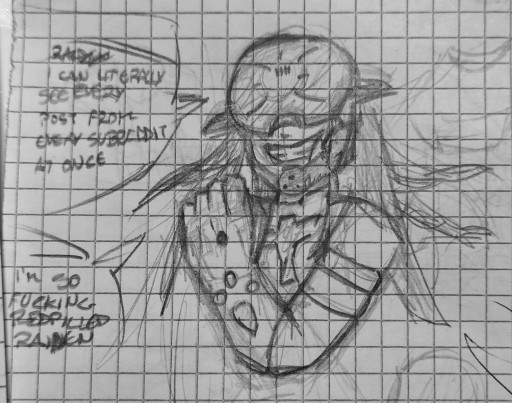 RAIDEN
I CAN LITERALLY
SEE EVERY
POST FROM
EVERY SUBREDDIT
AT ONCE
I'M SO
FUCKING
REDPILLED
RAIDEN